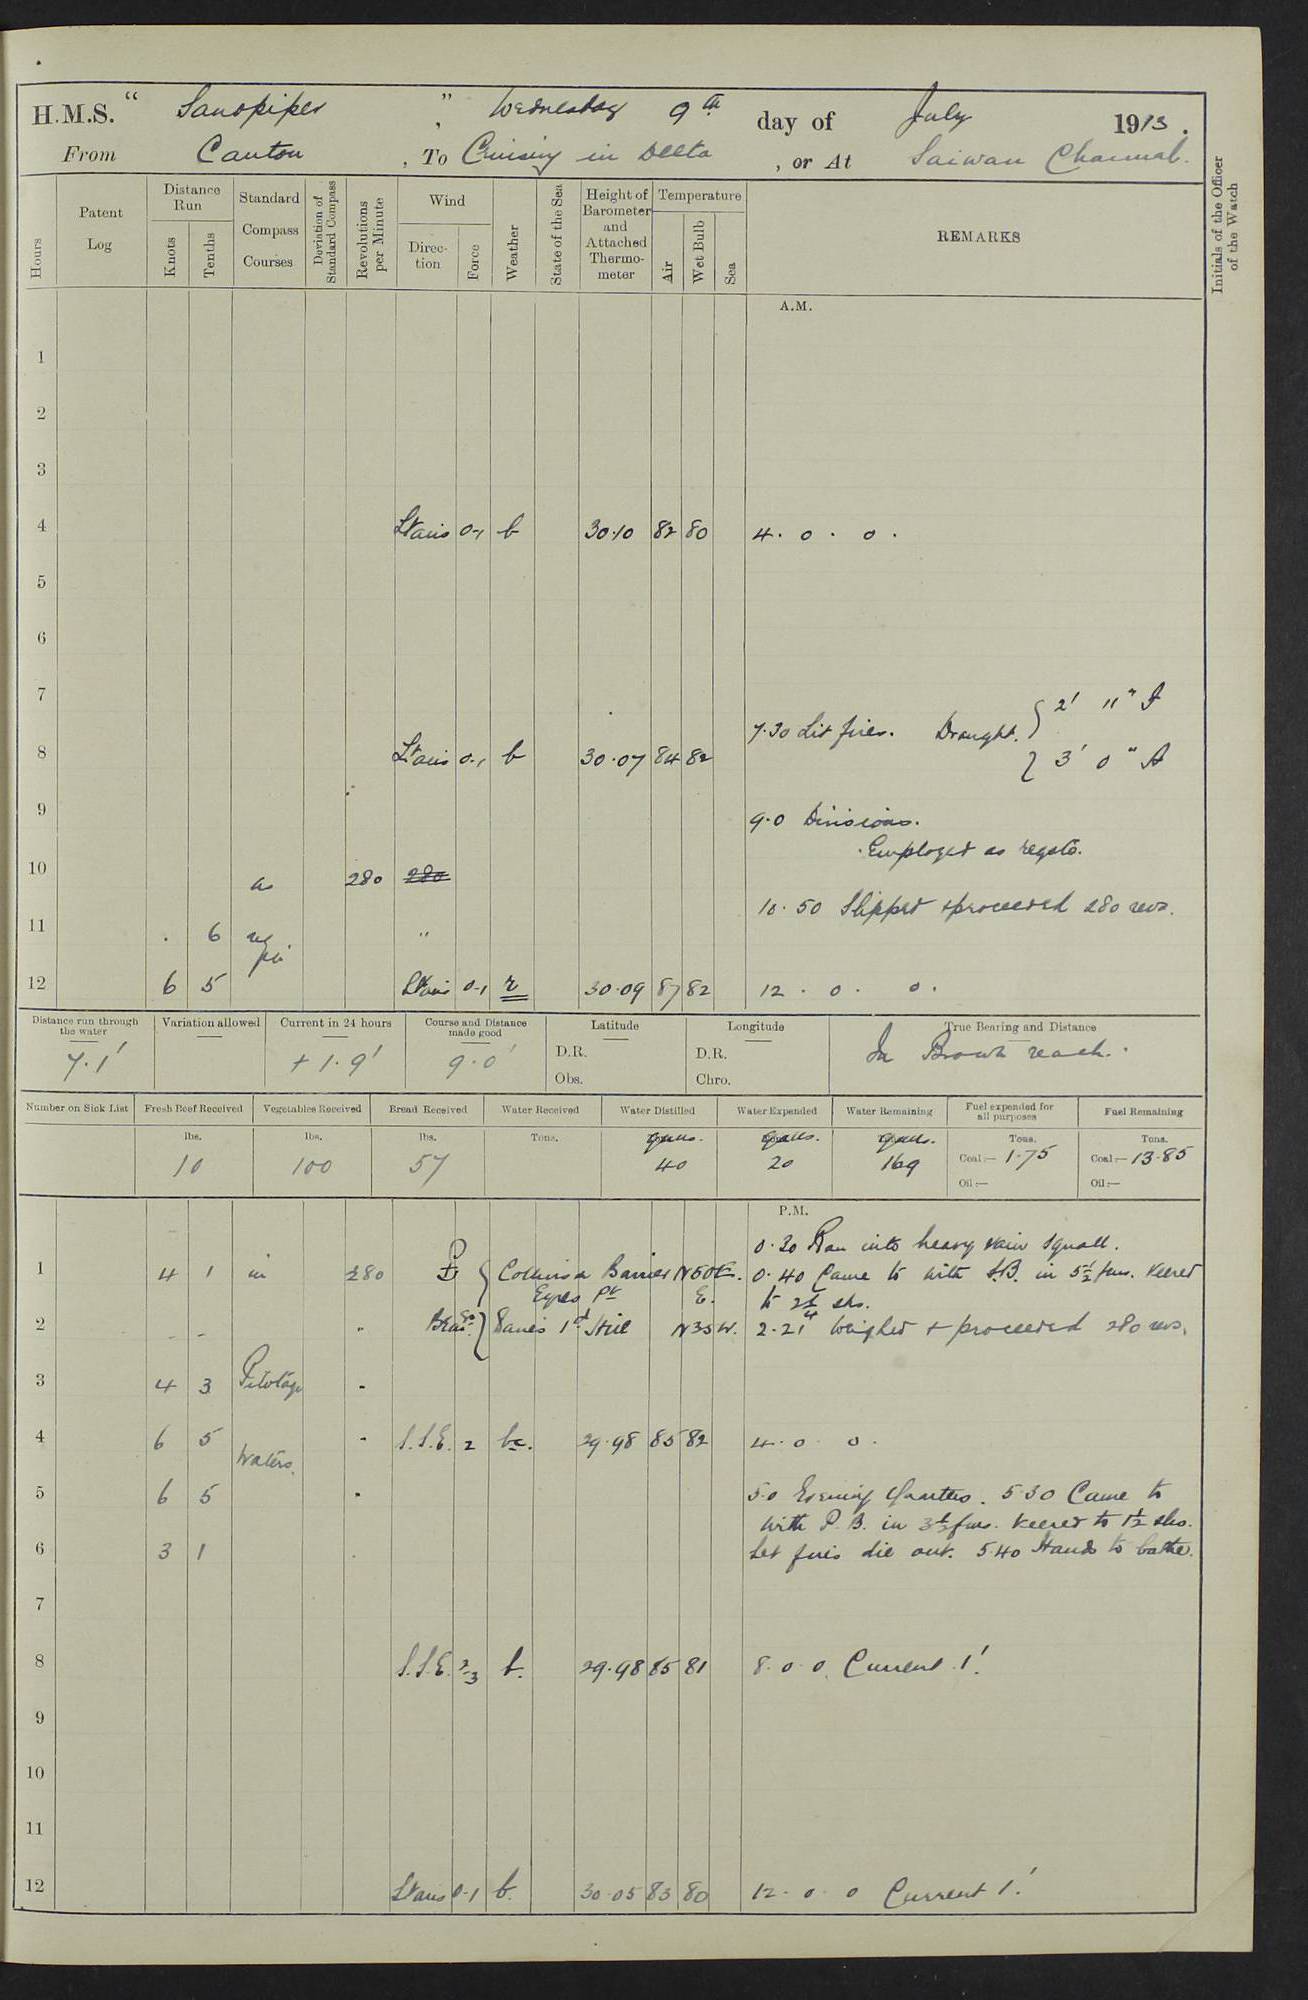 H.M.S. " Sandpiper ", Wednesday 9th day of July 1913.
From Canton, To Cruising in Delta, or At Saiwan Channel.
Hours
Patent Log
Distance Run
Knots
Tenths
Standard Compass Courses
Deviation of Standard Compass
Revolutions per Minute
Wind
Direction
Force
Weather
State of the Sea
Height of Barometer and Attached Thermometer
Temperature
Air
Wet Bulb
Sea
REMARKS
Initials of the Officer of the Watch
A.M.
1
2
3
4 Lt airs 0-1 b 30.10 82 80 4. 0. 0.
5
6
7 2' 11" F
7.30 Lit fires. Draught.
8 Lt airs 0-1 b 30.07 84 82 3' 0" A
9 9.0 Divisions.
Employed as reqte.
10 as 280 280
10.50 Slipped & proceeded 280 revs.
11 . 6 "
12 6 5 Lt airs 0-1 r 30.09 87 82 12. 0. 0.
Distance run through the water 7.1'
Variation allowed
Current in 24 hours + 1.9'
Course and Distance made good 9.0'
Latitude D.R. Obs.
Longitude D.R. Chro.
True Bearing and Distance In Brown reach.
Number on Sick List
Fresh Beef Received lbs. 10
Vegetables Received lbs. 100
Bread Received lbs. 57
Water Received Tons.
Water Distilled galls. 40
Water Expended galls. 20
Water Remaining galls. 169
Fuel expended for all purposes Tons. Coal:— 1.75 Oil:—
Fuel Remaining Tons. Coal:— 13.85 Oil:—
P.M.
0.30 Ran into heavy rain squall.
1 4 1 in 280 Collinson Barrier N50E. 0.40 Came to with S.B. in 5½ fms. Veered
Eyres Pk E. to 2¼ shs.
2 - - " Beags. Danes 1st Hill N35W. 2.21 Weighed & proceeded 280 revs.
3 4 3 Pilotage "
4 6 5 Waters. " S.S.E. 2 bc. 29.98 85 82 4. 0. 0.
5 6 5 " 5.0 Evening Quarters. 5.30 Came to
with P.B. in 3½ fms. Veered to 1½ shs.
6 3 1 Let fires die out. 5.40 Hands to bathe.
7
8 S.S.E. 2-3 b. 29.98 85 81 8. 0. 0. Current 1'.
9
10
11
12 Lt airs 0-1 b. 30.05 83 80 12. 0. 0 Current 1'.